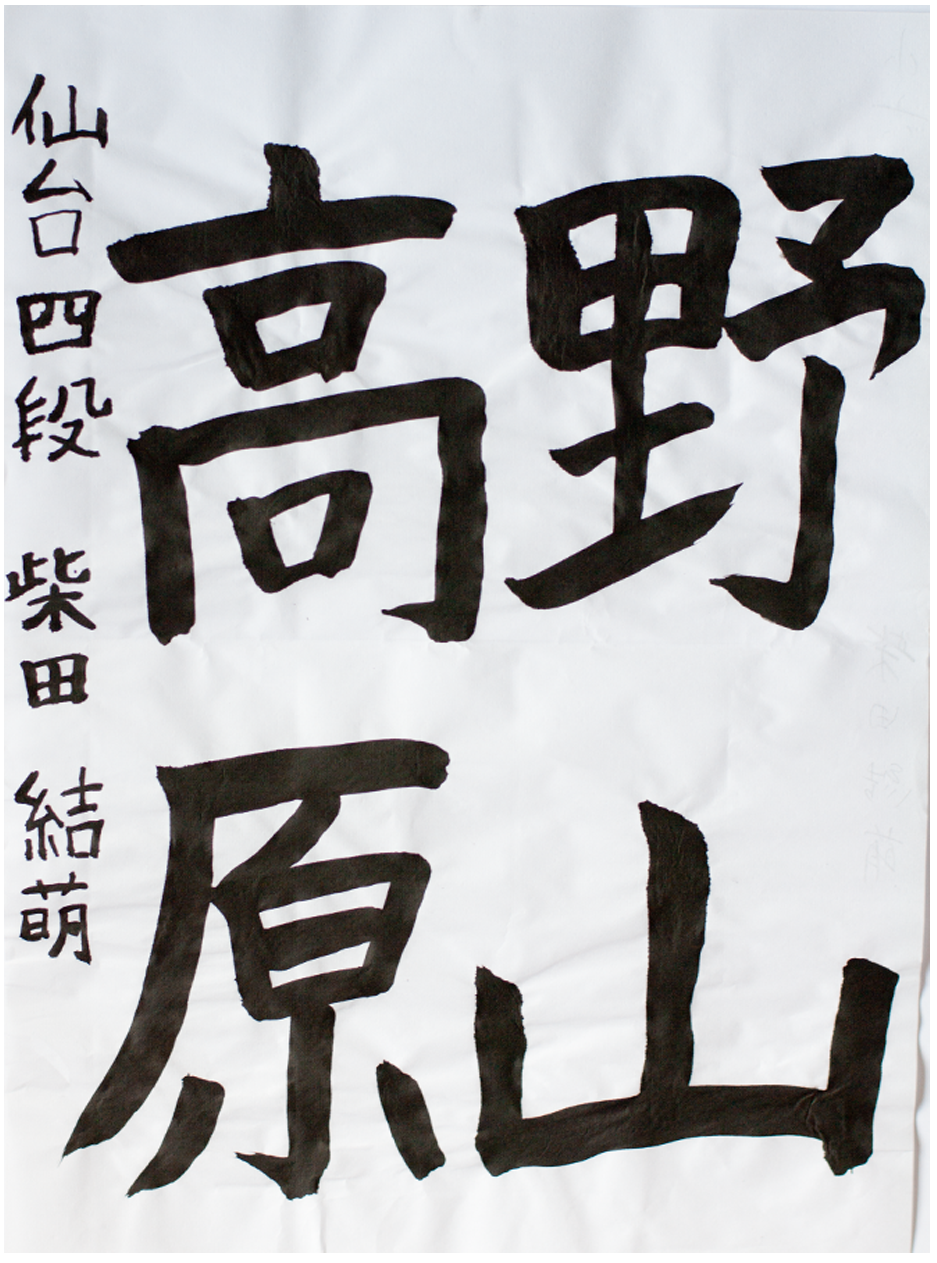 野山
高原
仙台四段 柴田 結萌